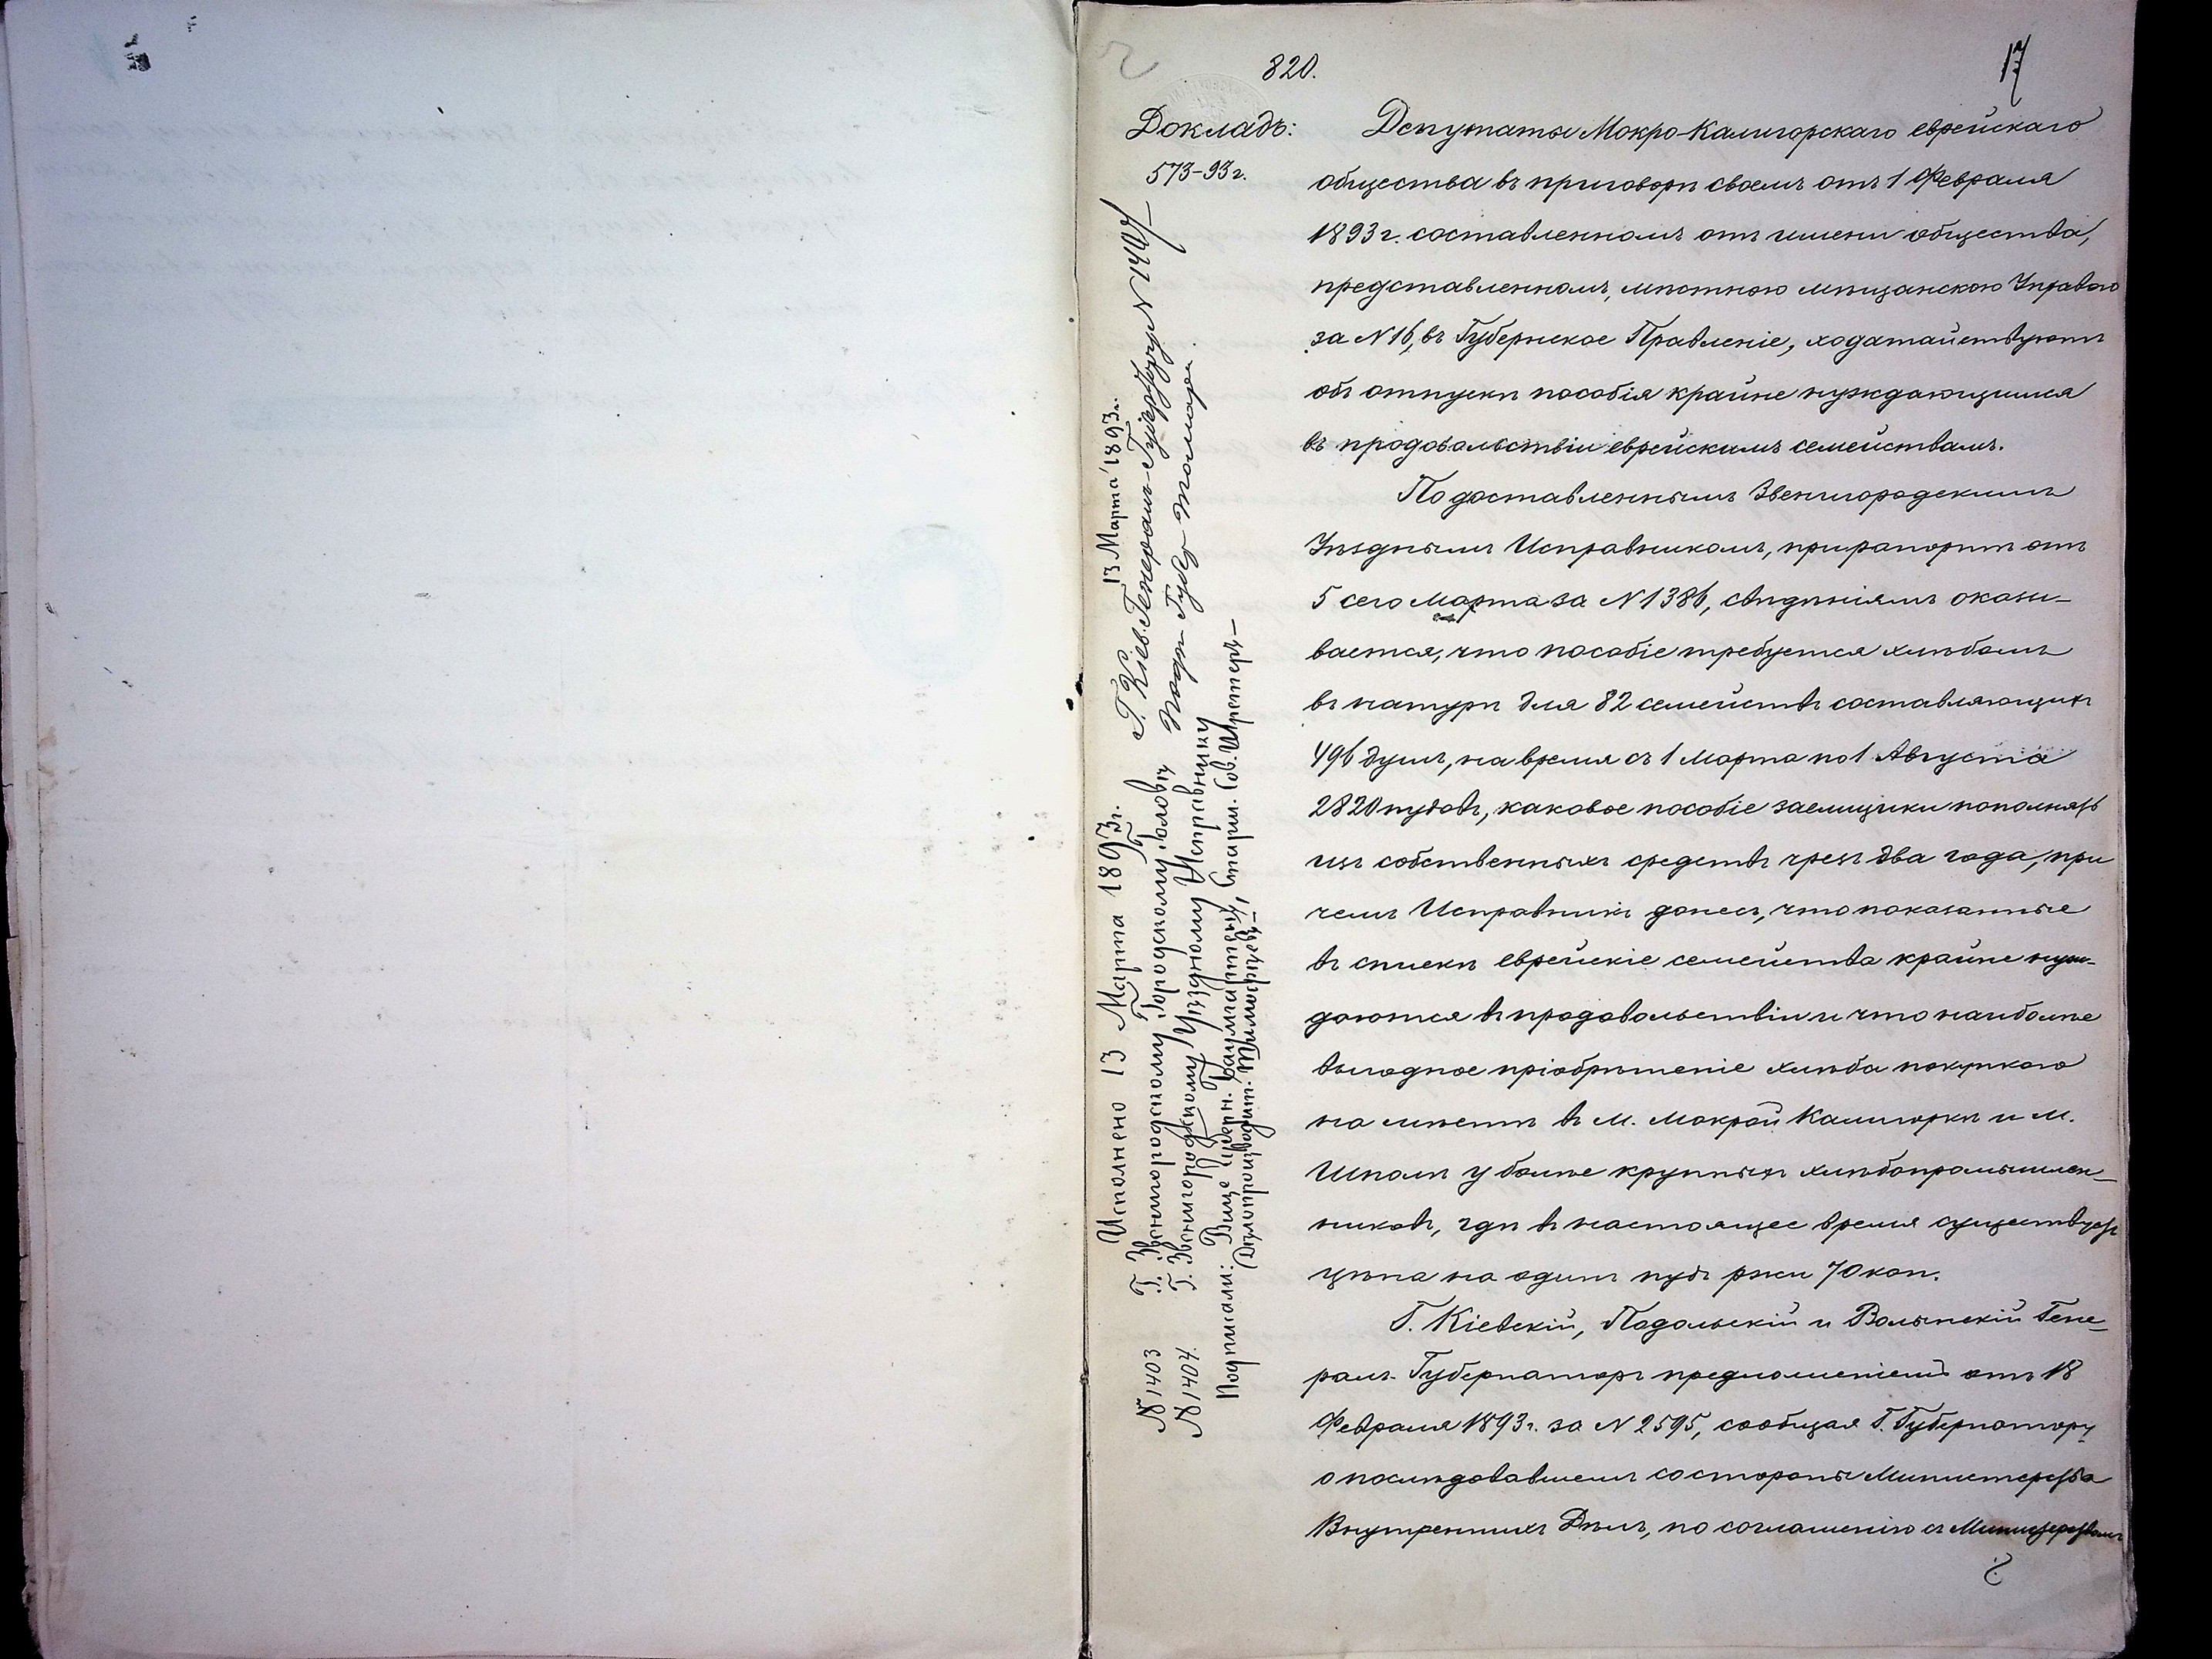 820.
17
Докладъ:
573-93г.
Депутаты Мокро-Калигорскаго еврейскаго
общества въ приговорѣ своемъ отъ 1 Февраля
1893 г. составленномъ отъ имени общества,
представленномъ, мѣстною мѣщанскою Управою
за N 16, въ Губернское Правленіе, ходатайствуютъ
объ отпускѣ пособія крайне нуждающимся
въ продовольствіи еврейскимъ семействамъ.
По доставленнымъ Звенигородскимъ
Уѣзднымъ Исправникомъ, при рапортѣ отъ
5 сего Марта за N 1386, свѣдѣніямъ оказы-
вается, что пособіе требуется хлѣбомъ
въ натурѣ для 82 семействъ составляющихъ
496 душъ, на время съ 1 Марта по 1 Августа
2820 пудовъ, каковое пособіе заемщики пополнятъ
изъ собственныхъ средствъ чрезъ два года, при
чемъ Исправникъ донесъ, что показанные
въ спискѣ еврейскіе семейства крайне нуж-
даются въ продовольствіи и что наиболѣе
выгодное пріобрѣтеніе хлѣба покупкою
на мѣстѣ въ М. Мокрой Калигоркѣ и М.
Шполѣ у болѣе крупныхъ хлѣбопромышлен-
никовъ, гдѣ въ настоящее время существуетъ
цѣна на одинъ пудъ ржи 70 коп.
Г. Кіевскій, Подольскій и Волынскій Гене-
ралъ-Губернаторъ предложеніемъ отъ 18
Февраля 1893 г. за N 2595, сообщая Г. Губернатору
о послѣдовавшемъ со стороны Министерства
Внутреннихъ Дѣлъ, по соглашенію съ Министерствомъ
Исполнено 13 Марта 1893 г.
№ 1403 Г. Звенигородскому Городскому Головѣ
№ 1404. Г. Звенигородскому Уѣздному Исправнику
Подписали: Вице Губерн. Баумгартенъ, Старш. Сов.
Дѣлопроизводит.
13 Марта 1893 г.
Г. Кіев. Генералъ-Губернатору N 1407
Подп. Губер. Томара.